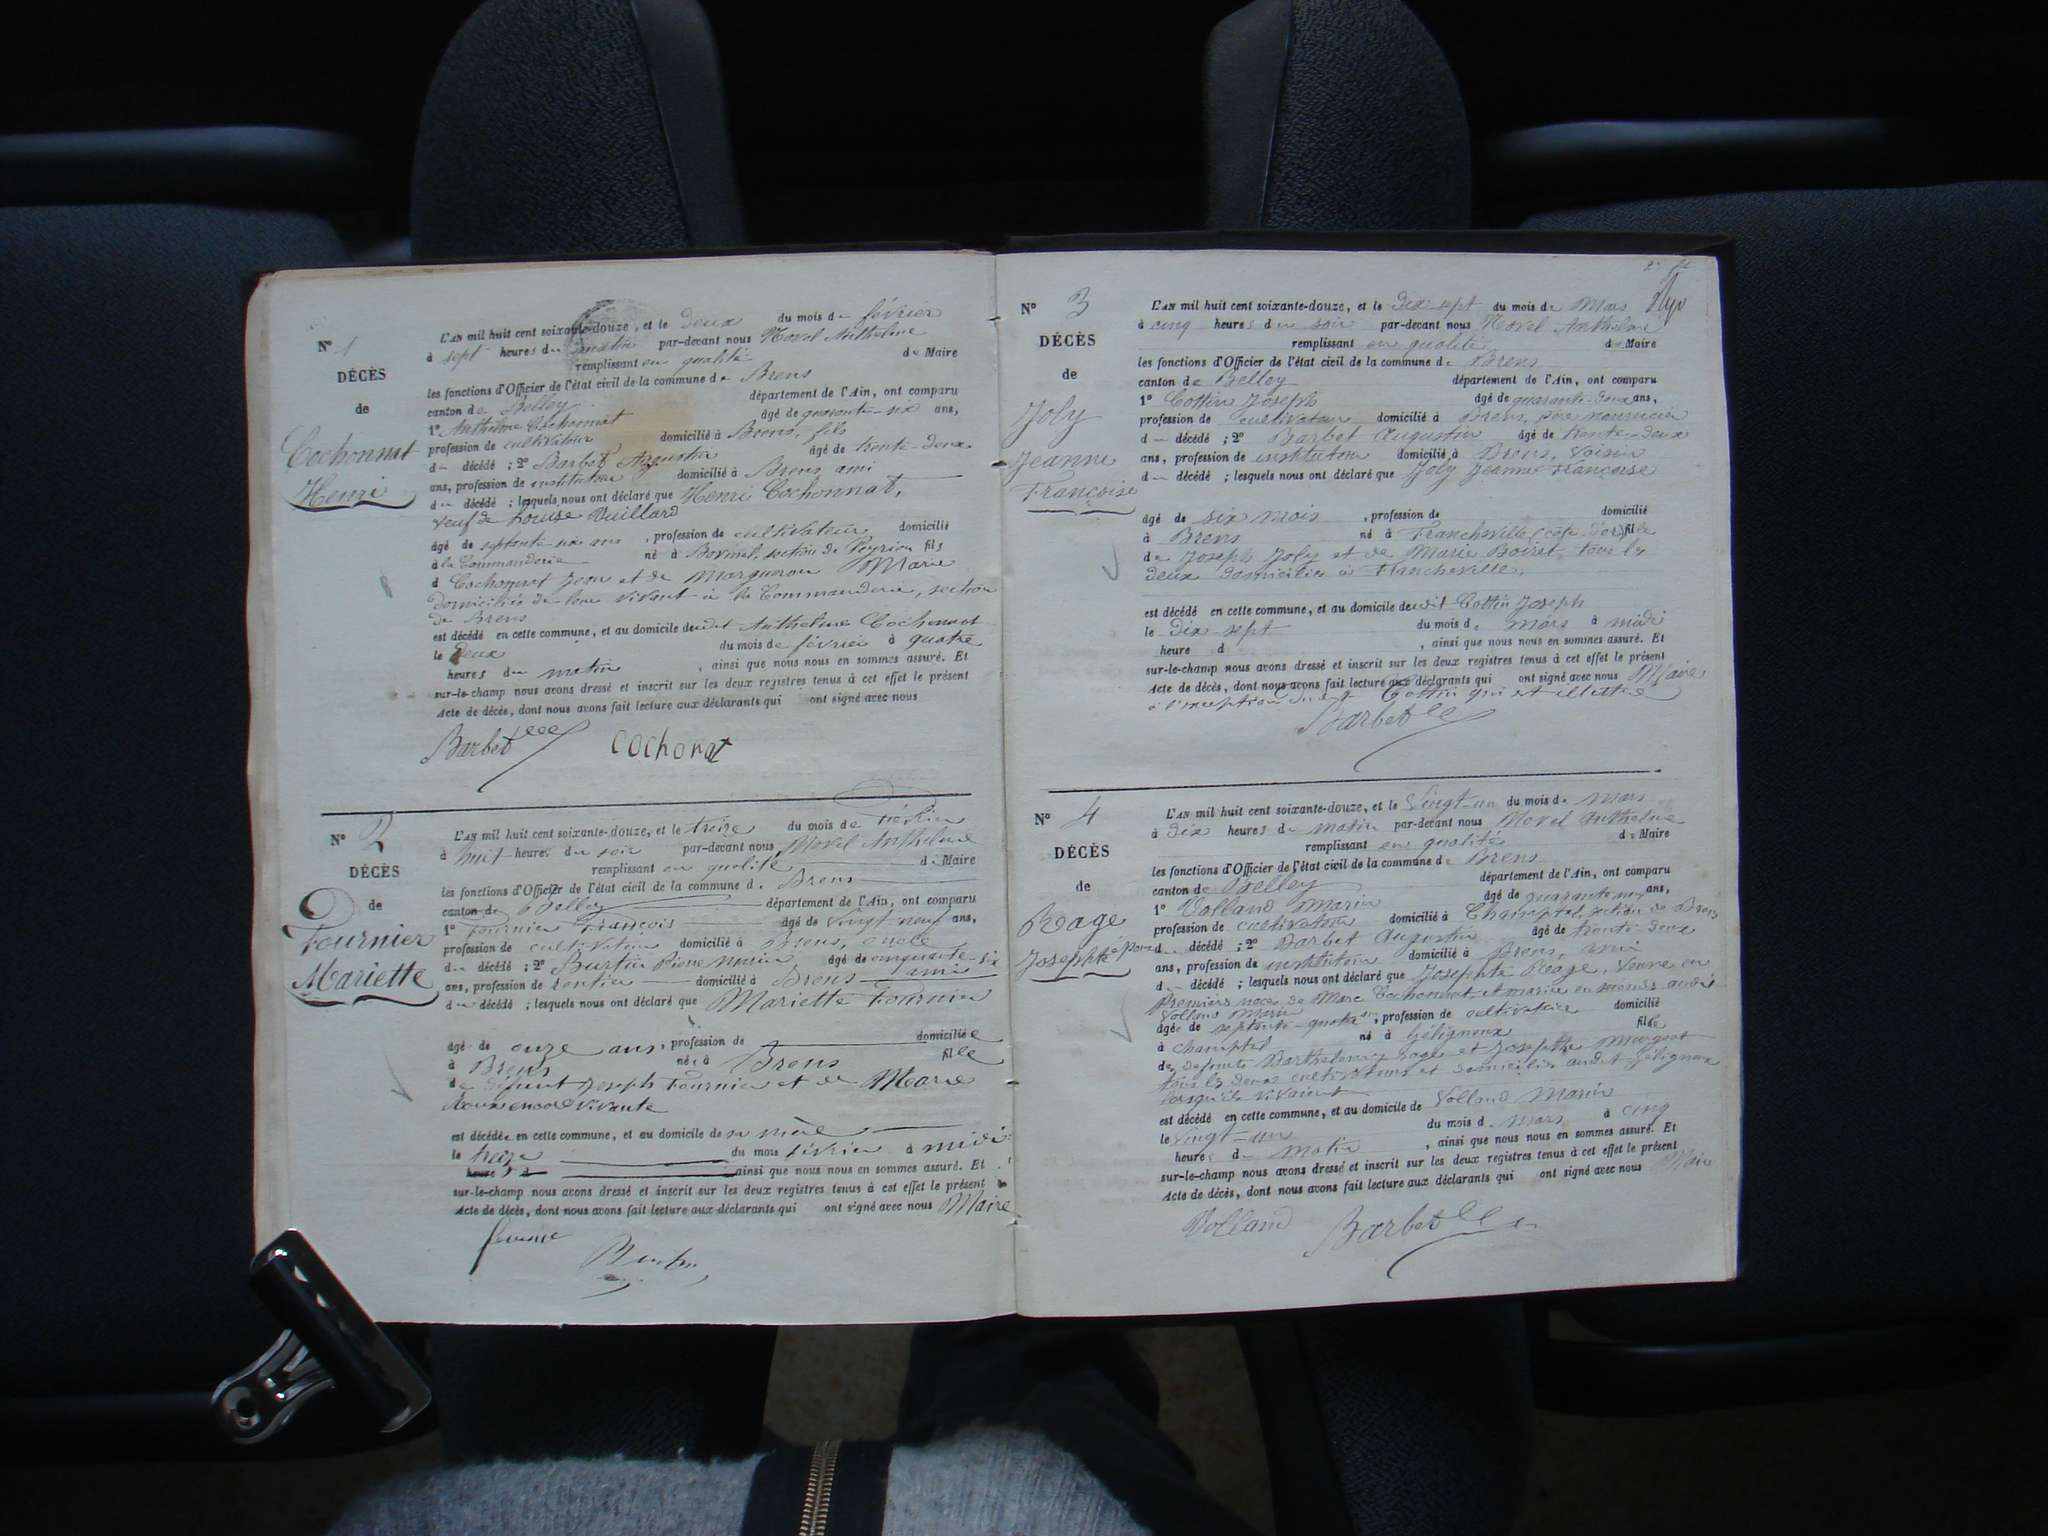 N° 1
DÉCÈS
de
Cochonnat
Henri
L'AN mil huit cent soixante-douze, et le deux du mois de février
à sept heures du matin par-devant nous Morel Anthelme
remplissant en qualité de Maire
les fonctions d'Officier de l'état civil de la commune de Brens
canton de Belley département de l'Ain, ont comparu
1° Anthelme Cochonnat âgé de quarante-six ans,
profession de cultivateur domicilié à Brens, fils
du décédé ; 2° Barbet Augustin âgé de trente-deux
ans, profession de instituteur domicilié à Brens, ami
du décédé ; lesquels nous ont déclaré que Henri Cochonnat,
veuf de Louise Vuillard
âgé de septante-six ans, profession de cultivateur domicilié
à la Commanderie né à section de Peyrieu fils
d Cochonnat Jean et de Marguerou Marie
domiciliés de leur vivant à la Commanderie, section
de Brens
est décédé en cette commune, et au domicile dudit Anthelme Cochonnat
le deux du mois de février à quatre
heures du matin, ainsi que nous nous en sommes assuré. Et
sur-le-champ nous avons dressé et inscrit sur les deux registres tenus à cet effet le présent
Acte de décès, dont nous avons fait lecture aux déclarants qui ont signé avec nous
Barbet cochonat
N° 2
DÉCÈS
de
Fournier
Mariette
L'AN mil huit cent soixante-douze, et le treize du mois de février
à huit heures du soir par-devant nous Morel Anthelme
remplissant en qualité de Maire
les fonctions d'Officier de l'état civil de la commune de Brens
canton de Belley département de l'Ain, ont comparu
1° Fournier François âgé de vingt-neuf ans,
profession de cultivateur domicilié à Brens, oncle
du décédé ; 2° Burtin Pierre Marin âgé de cinquante-six
ans, profession de rentier domicilié à Brens ami
du décédé ; lesquels nous ont déclaré que Mariette Fournier
âgé de onze ans, profession de domiciliée
à Brens née à Brens fille
de défunt Joseph Fournier et de Marie
encore vivante
est décédée en cette commune, et au domicile de sa mère
le treize du mois février à midi
heures d ainsi que nous nous en sommes assuré. Et
sur-le-champ nous avons dressé et inscrit sur les deux registres tenus à cet effet le présent
Acte de décès, dont nous avons fait lecture aux déclarants qui ont signé avec nous Maire
Burtin
N° 3
DÉCÈS
de
Joly
Jeanne
Françoise
L'AN mil huit cent soixante-douze, et le dix sept du mois de Mars
à cinq heures du soir par-devant nous Morel Anthelme
remplissant en qualité de Maire
les fonctions d'Officier de l'état civil de la commune de Brens
canton de Belley département de l'Ain, ont comparu
1° Cottin Joseph âgé de quarante-deux ans,
profession de cultivateur domicilié à Brens, père nourricier
d décédé ; 2° Barbet Augustin âgé de trente-deux
ans, profession de instituteur domicilié à Brens, voisin
d décédé ; lesquels nous ont déclaré que Joly Jeanne Françoise
âgé de six mois, profession de domicilié
à Brens né à Francheville (côte d'or) fille
de Joseph Joly et de Marie Boiret tous les
deux domiciliés à Francheville,
est décédé en cette commune, et au domicile dudit Cottin Joseph
le dix-sept du mois de mars à midi
heure d , ainsi que nous nous en sommes assuré. Et
sur-le-champ nous avons dressé et inscrit sur les deux registres tenus à cet effet le présent
Acte de décès, dont nous avons fait lecture aux déclarants qui ont signé avec nous Maire
à l'exception du Cottin qui est illettré
Barbet
N° 4
DÉCÈS
de
Rage
Josephte
L'AN mil huit cent soixante-douze, et le vingt-un du mois de mars
à dix heures du matin par-devant nous Morel Anthelme
remplissant en qualité de Maire
les fonctions d'Officier de l'état civil de la commune de Brens
canton de Belley département de l'Ain, ont comparu
1° Volland Marin âgé de quarante neuf ans,
profession de cultivateur domicilié à Champtel, section de Brens
d décédé ; 2° Barbet Augustin âgé de trente-deux
ans, profession de instituteur domicilié à Brens, ami
d décédé ; lesquels nous ont déclaré que Josephte Rage, veuve en
premiers noce de Marc Cochonnat, mariée en audit
Volland Marin
âgée de septante-quatre, profession de cultivatrice domicilié
à Champtel né à Gélignieux fille
de défunts Barthelemy Rage et Josephte Margot
tous les deux cultivateurs et domiciliés audit Gélignieux
lorsqu'ils vivaient
est décédé en cette commune, et au domicile de Volland Marin
le vingt-un du mois d mars à cinq
heures du matin, ainsi que nous nous en sommes assuré. Et
sur-le-champ nous avons dressé et inscrit sur les deux registres tenus à cet effet le présent
Acte de décès, dont nous avons fait lecture aux déclarants qui ont signé avec nous Maire
Volland Barbet